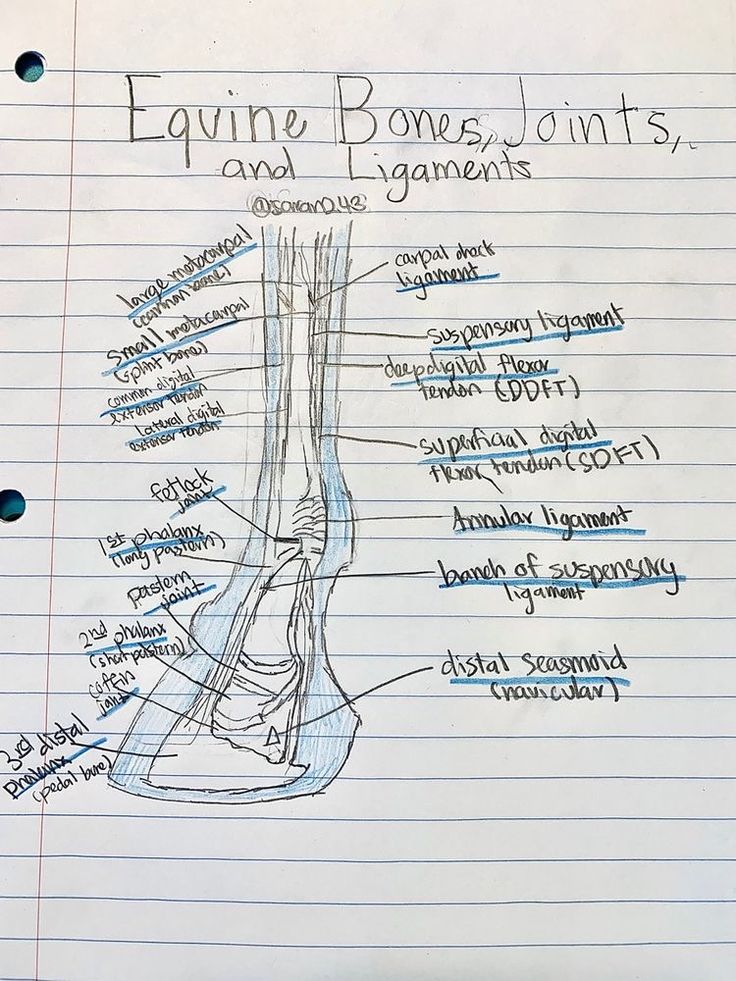 Equine Bones, Joints,
and Ligaments
@saran243
large metacarpal
(cannon bone)
small metacarpal
(splint bone)
common digital
extensor tendon
Lateral digital
extensor tendon
fetlock
joint
1st phalanx
(long pastern)
pastern
joint
2nd phalanx
(short pastern)
coffin
joint
3rd distal
phalanx
(pedal bone)
carpal check
ligament
suspensory ligament
deep digital flexor
tendon (DDFT)
superficial digital
flexor tendon (SDFT)
Annular ligament
branch of suspensory
ligament
distal seasmoid
(navicular)